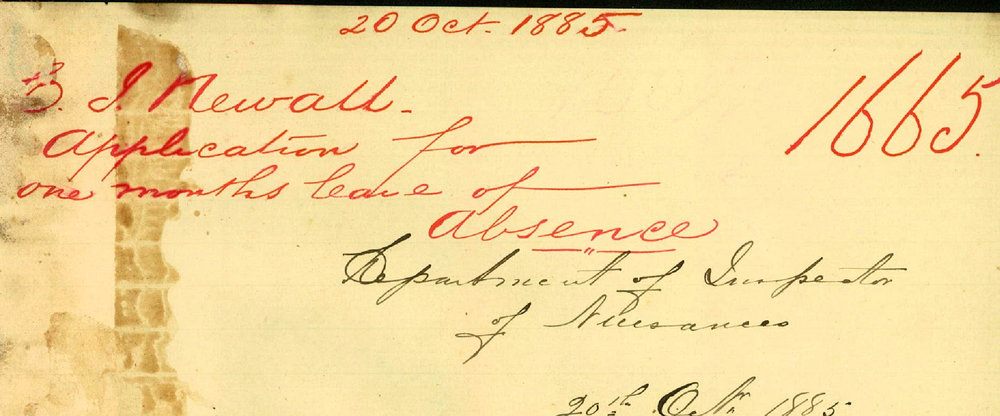 20 Oct. 1885.
B. J. Newall.
1665.
Application for
one months leave of
Absence
Department of Inspector
of Nuisances
20th Octr 1885